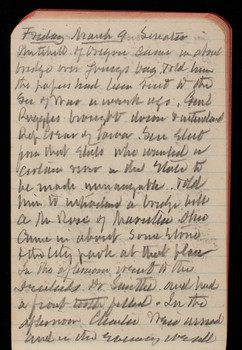 Friday March 9. Senator
Mitchell of Oregon came in about
bridge over Youngs bay. Told him
the papers had been sent to the
Sec of War a week ago. Genl
Ruggles brought down & introduced
Rep. of Iowa. Sen Elect
from that State who wanted a
certain river in the State to
be made unnavigable. Told
him to introduce a bridge bill
a Mr Rose of Marietta Ohio
came in about some Stone
& the City park at that place
In the afternoon went to the
Dentists Dr. Smith and had
a front tooth filled. In the
afternoon Charlie arrived
and in the evening we all